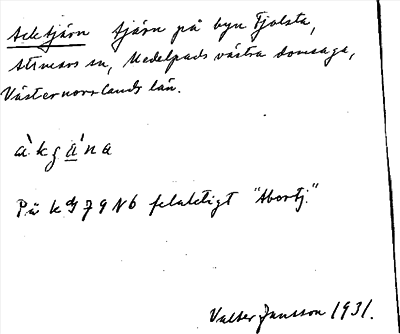 Acktjärn tjärn på byn Fjolsta,
Attmars sn, Medelpads västra domsaga,
Västernorrlands län.
àkgána
På k 79 Nb felaktigt "Abortj."
Valter Jansson 1931.